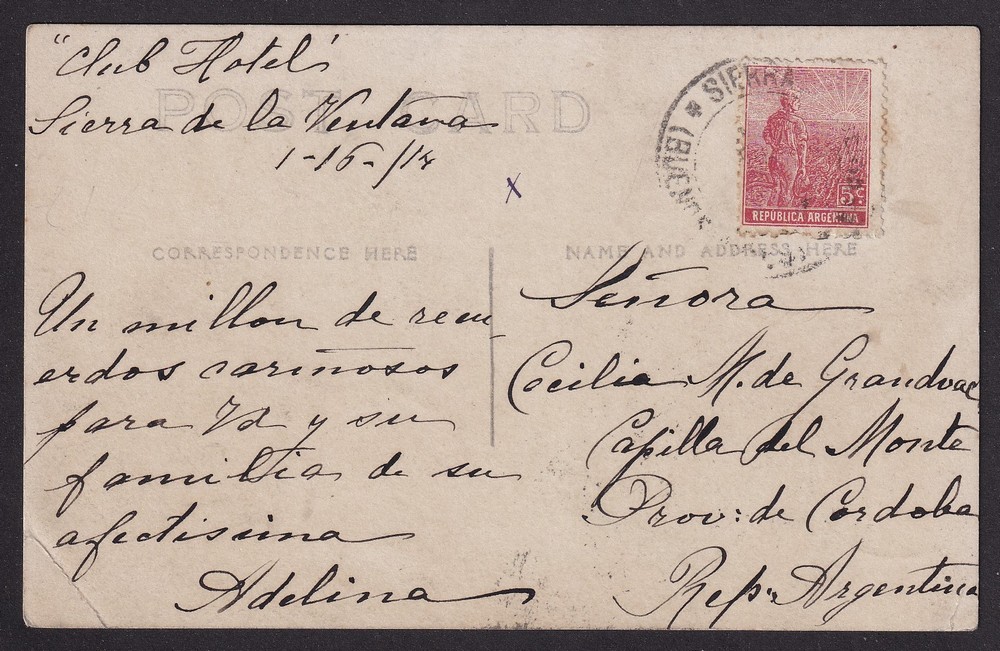 "Club Hotel"
POST CARD
Sierra de la Ventana
1-16-/14
x
SIERRA
(BUENOS
5c
REPÚBLICA ARGENTINA
CORRESPONDENCE HERE
NAME AND ADDRESS HERE
Un millon de recu-
erdos cariñosos
para Vd y su
familia de su
afectisima
Adelina
Señora
Cecilia M. de Grandvac
Capilla del Monte
Prov: de Cordoba
Rep. Argentina